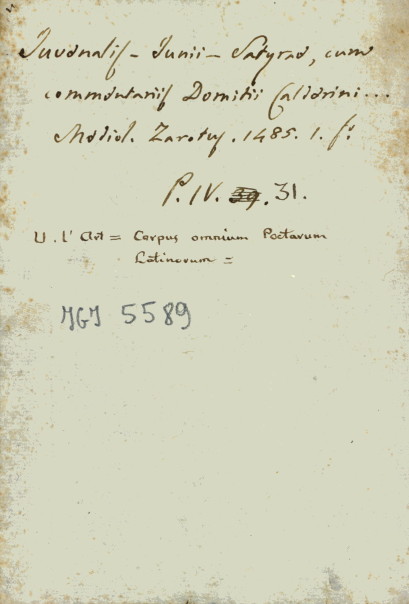 Juvenalis - Junii - Satyrae, cum
commentariis Domitii Calderini...
Mediol. Zarotus. 1485. 1. f.º
P. IV. 39. 31.
V. l' Art = Corpus omnium Poetarum
Latinorum =
IGI 5589